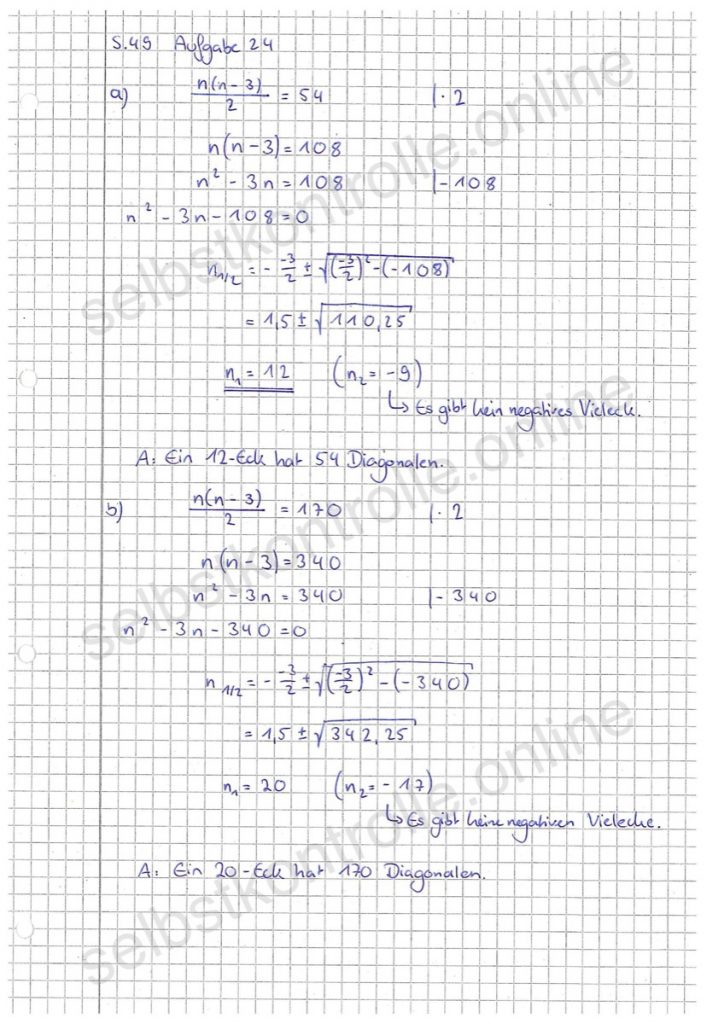 S.49 Aufgabe 24
a) n(n-3)/2 = 54 | · 2
n(n-3) = 108
n² - 3n = 108 | - 108
n² - 3n - 108 = 0
n₁/₂ = - -3/2 ± √((-3/2)² - (-108))
= 1,5 ± √110,25
n₁ = 12 (n₂ = -9)
↳ Es gibt kein negatives Vieleck.
A: Ein 12-Eck hat 54 Diagonalen.
b) n(n-3)/2 = 170 | · 2
n(n-3) = 340
n² - 3n = 340 | - 340
n² - 3n - 340 = 0
n₁/₂ = - -3/2 ± √((-3/2)² - (-340))
= 1,5 ± √342,25
n₁ = 20 (n₂ = -17)
↳ Es gibt keine negativen Vielecke.
A: Ein 20-Eck hat 170 Diagonalen.
selbstkontrolle.online
selbstkontrolle.online
selbstkontrolle.online